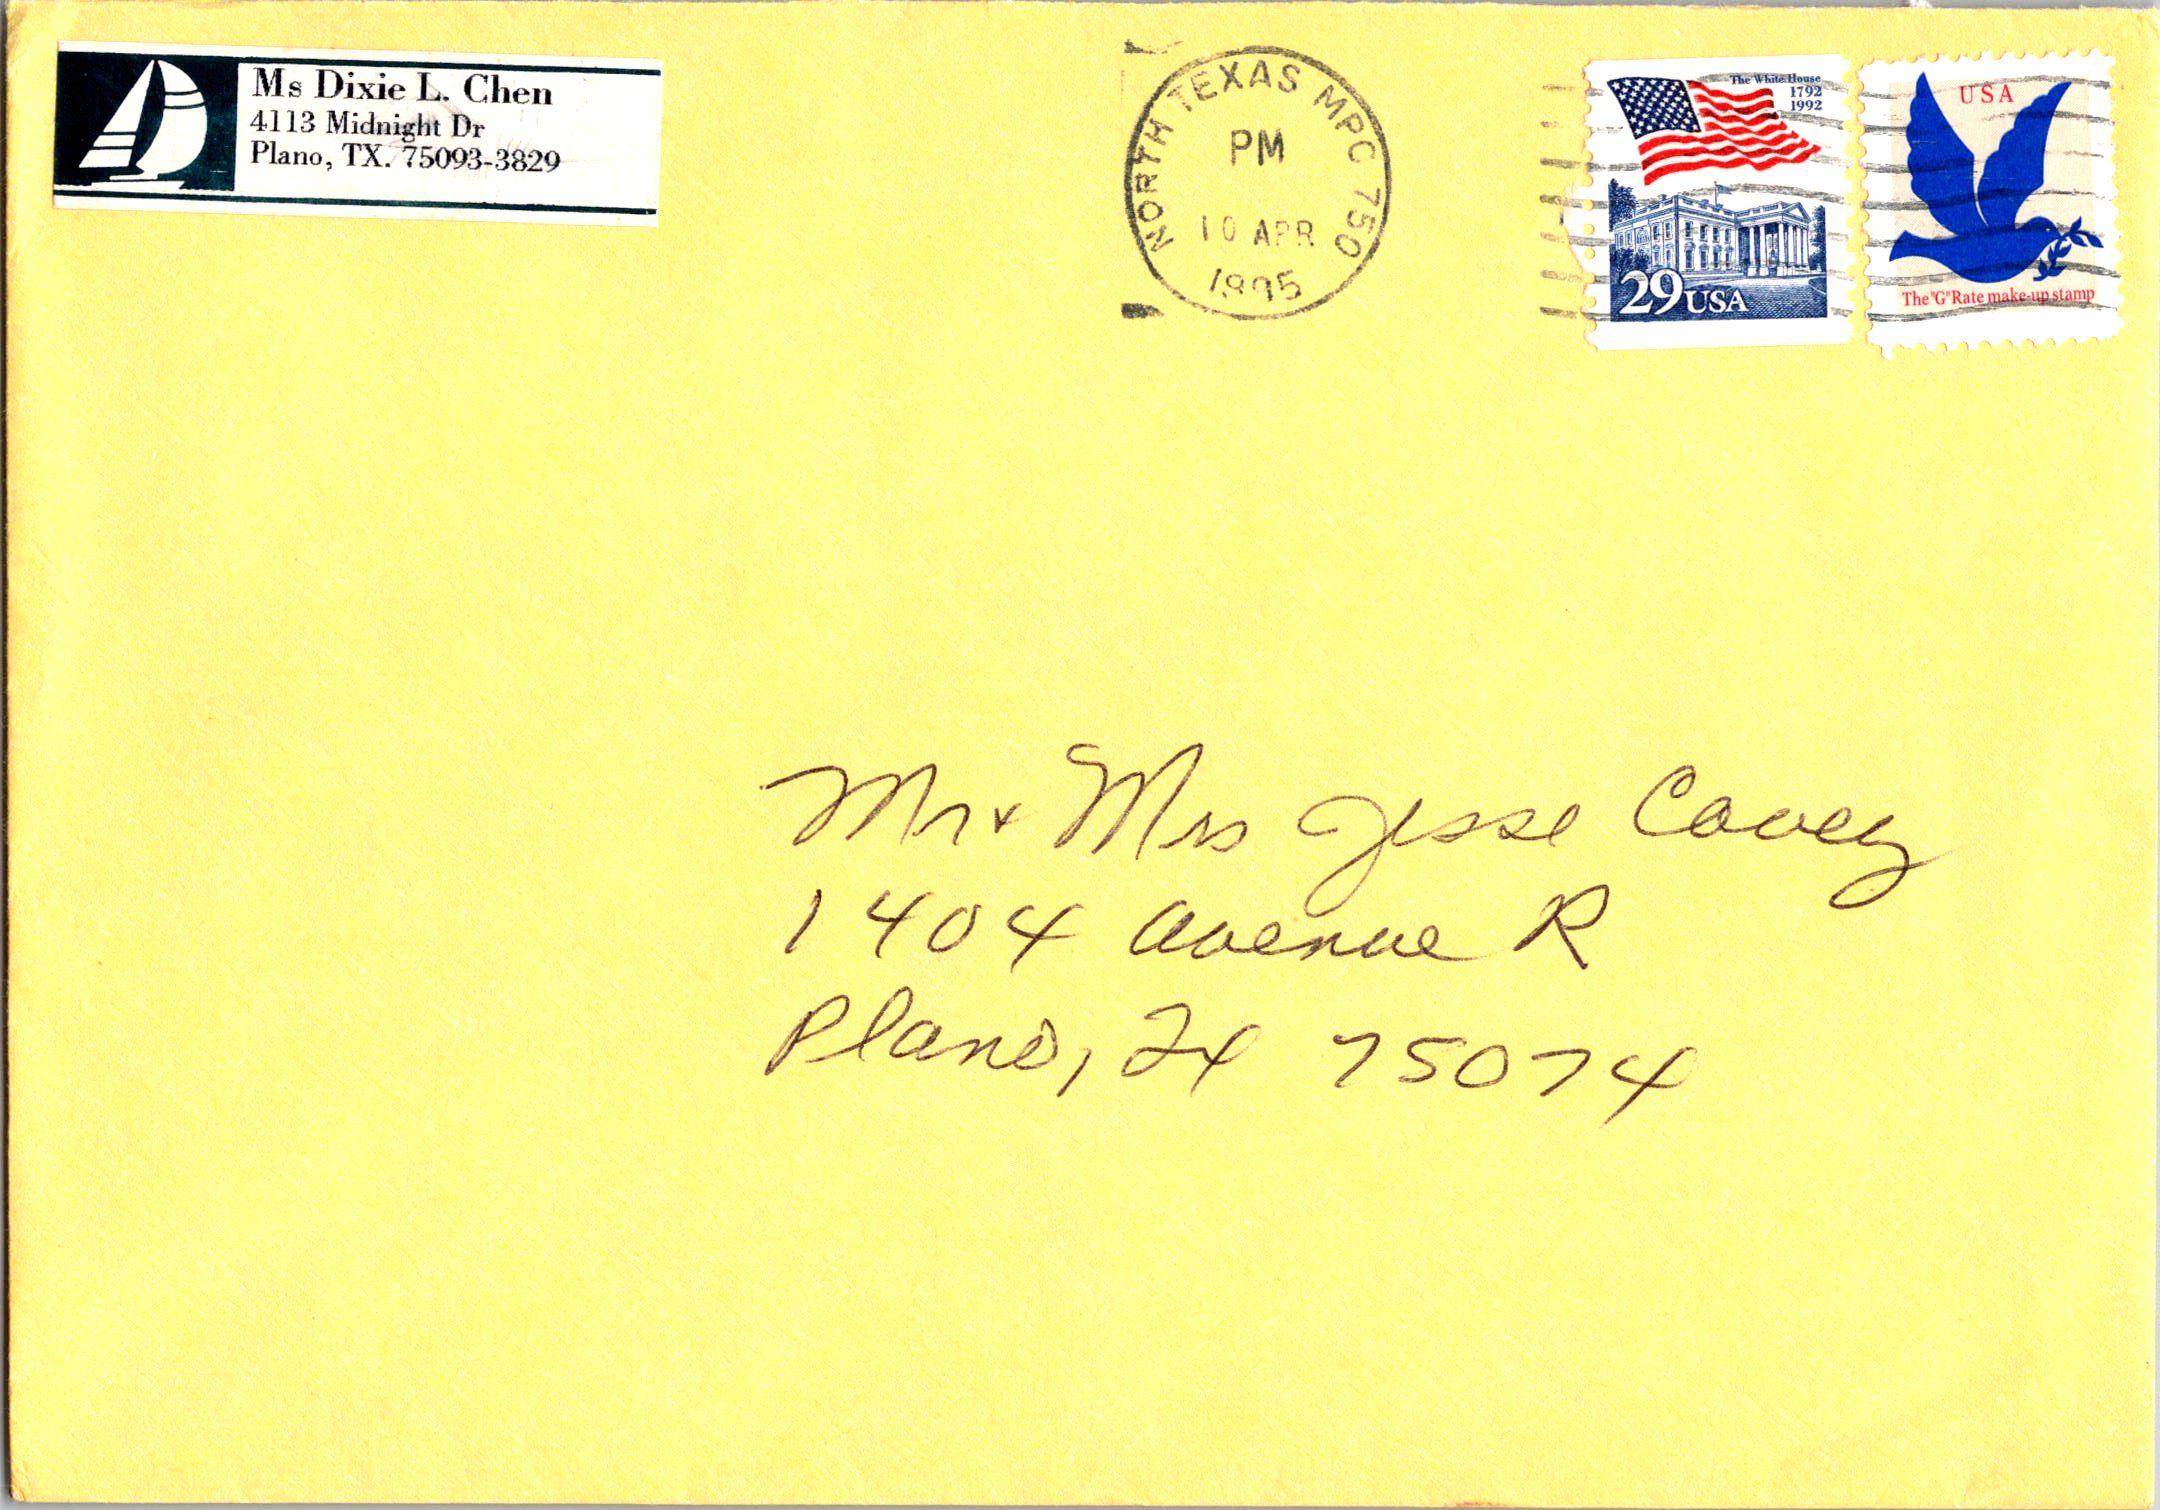 Ms Dixie L. Chen
4113 Midnight Dr
Plano, TX. 75093-3829
NORTH TEXAS MPC 750
PM
10 APR
1995
The White House
1792
1992
29 USA
USA
The "G" Rate make-up stamp
Mr + Mrs Jesse Covey
1404 Avenue R
Plano, Tx 75074